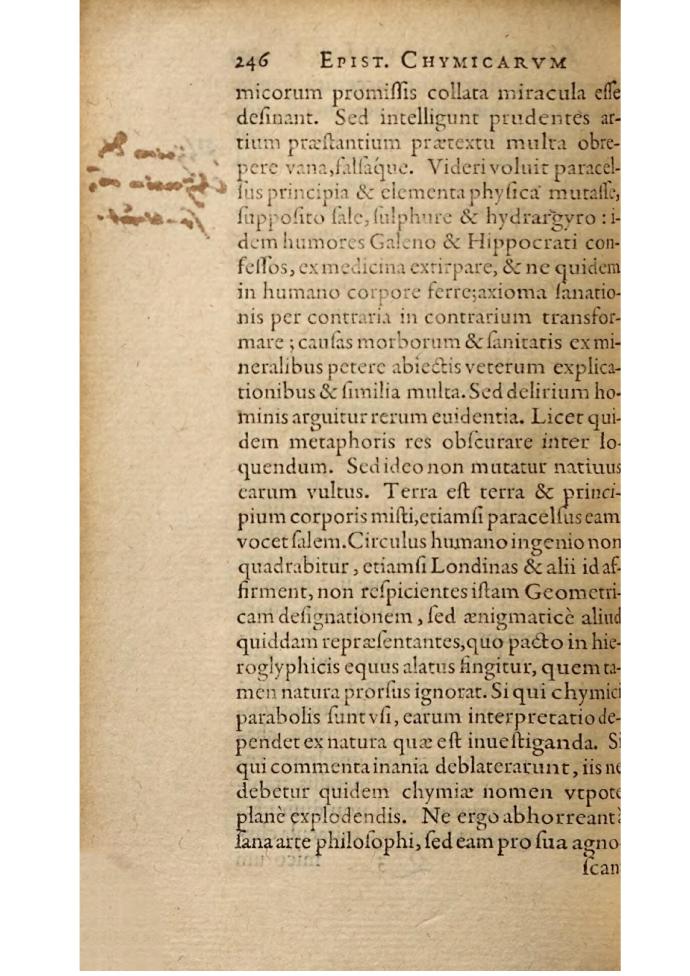 246 EPIST. CHYMICARVM
micorum promiſſis collata miracula eſſe
deſinant. Sed intelligunt prudentes ar-
tium præſtantium prætextu multa obre-
pere vana,falſaque. Videri voluit paracel-
ſus principia & elementa phyſica mutaſſe,
ſuppoſito ſale, ſulphure & hydrargyro : i-
dem humores Galeno & Hippocrati con-
feſſos, ex medicina extirpare, & ne quidem
in humano corpore ferre;axioma ſanatio-
nis per contraria in contrarium transfor-
mare ; cauſas morborum & ſanitatis ex mi-
neralibus petere abiectis veterum explica-
tionibus & ſimilia multa. Sed delirium ho-
minis arguitur rerum euidentia. Licet qui-
dem metaphoris res obſcurare inter lo-
quendum. Sed ideo non mutatur natiuus
earum vultus. Terra eſt terra & princi-
pium corporis miſti,etiamſi paracelſus eam
vocet ſalem.Circulus humano ingenio non
quadrabitur, etiamſi Londinas & alii id af-
firment, non reſpicientes iſtam Geometri-
cam deſignationem, ſed ænigmaticè aliud
quiddam repræſentantes,quo pacto in hie-
roglyphicis equus alatus fingitur, quem ta-
men natura prorſus ignorat. Si qui chymici
parabolis ſunt vſi, earum interpretatio de-
pendet ex natura quæ eſt inueſtiganda. Si
qui commenta inania deblaterarunt, iis ne
debetur quidem chymiæ nomen vtpote
planè explodendis. Ne ergo abhorreant à
ſana arte philoſophi, ſed eam pro ſua agno
ſcan